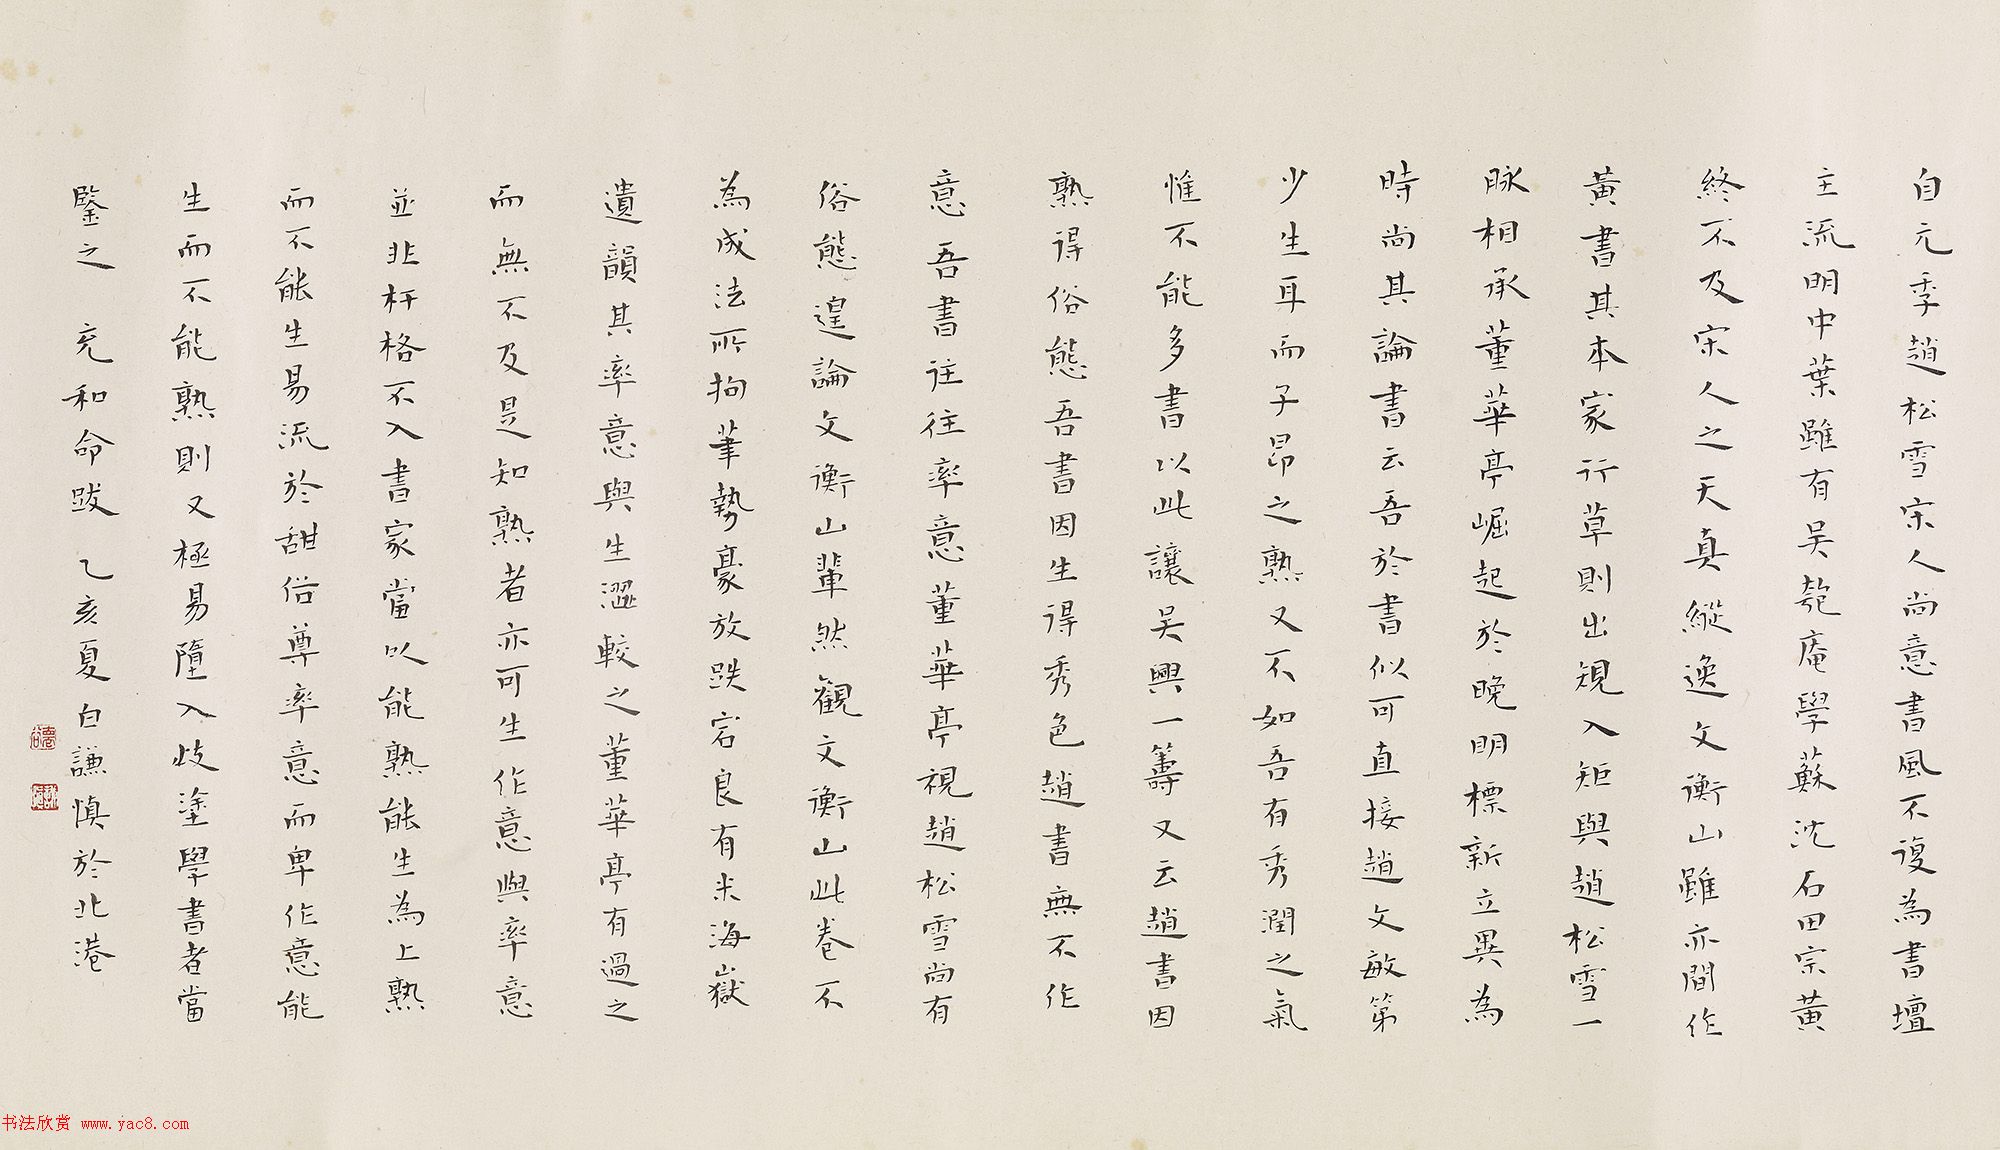 自元季趙松雪宋人尚意書風不復為書壇
主流明中葉雖有吴匏庵學蘇沈石田宗黃
終不及宋人之天真縱逸文衡山雖亦間作
黃書其本家行草則出規入矩與趙松雪一
脉相承董華亭崛起於晚明標新立異為
時尚其論書云吾於書似可直接趙文敏第
少生耳而子昂之熟又不如吾有秀潤之氣
惟不能多書以此讓吴興一籌又云趙書因
熟得俗態吾書因生得秀色趙書無不作
意吾書往往率意董華亭視趙松雪尚有
俗態遑論文衡山輩然觀文衡山此卷不
為成法所拘筆勢豪放跌宕良有米海嶽
遺韻其率意與生澀較之董華亭有過之
而無不及是知熟者亦可生作意與率意
並非杆格不入書家當以能熟能生為上熟
而不能生易流於甜俗尊率意而卑作意能
生而不能熟則又極易墮入歧塗學書者當
鑒之 充和命跋 乙亥夏白謙慎於北港
书法欣赏 www.yac8.com